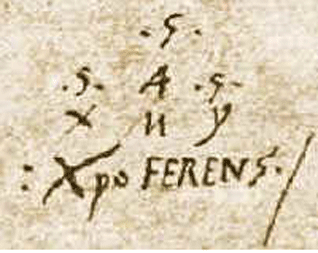 .S.
.S. A .S.
X M Y
: Xpo FERENS. /